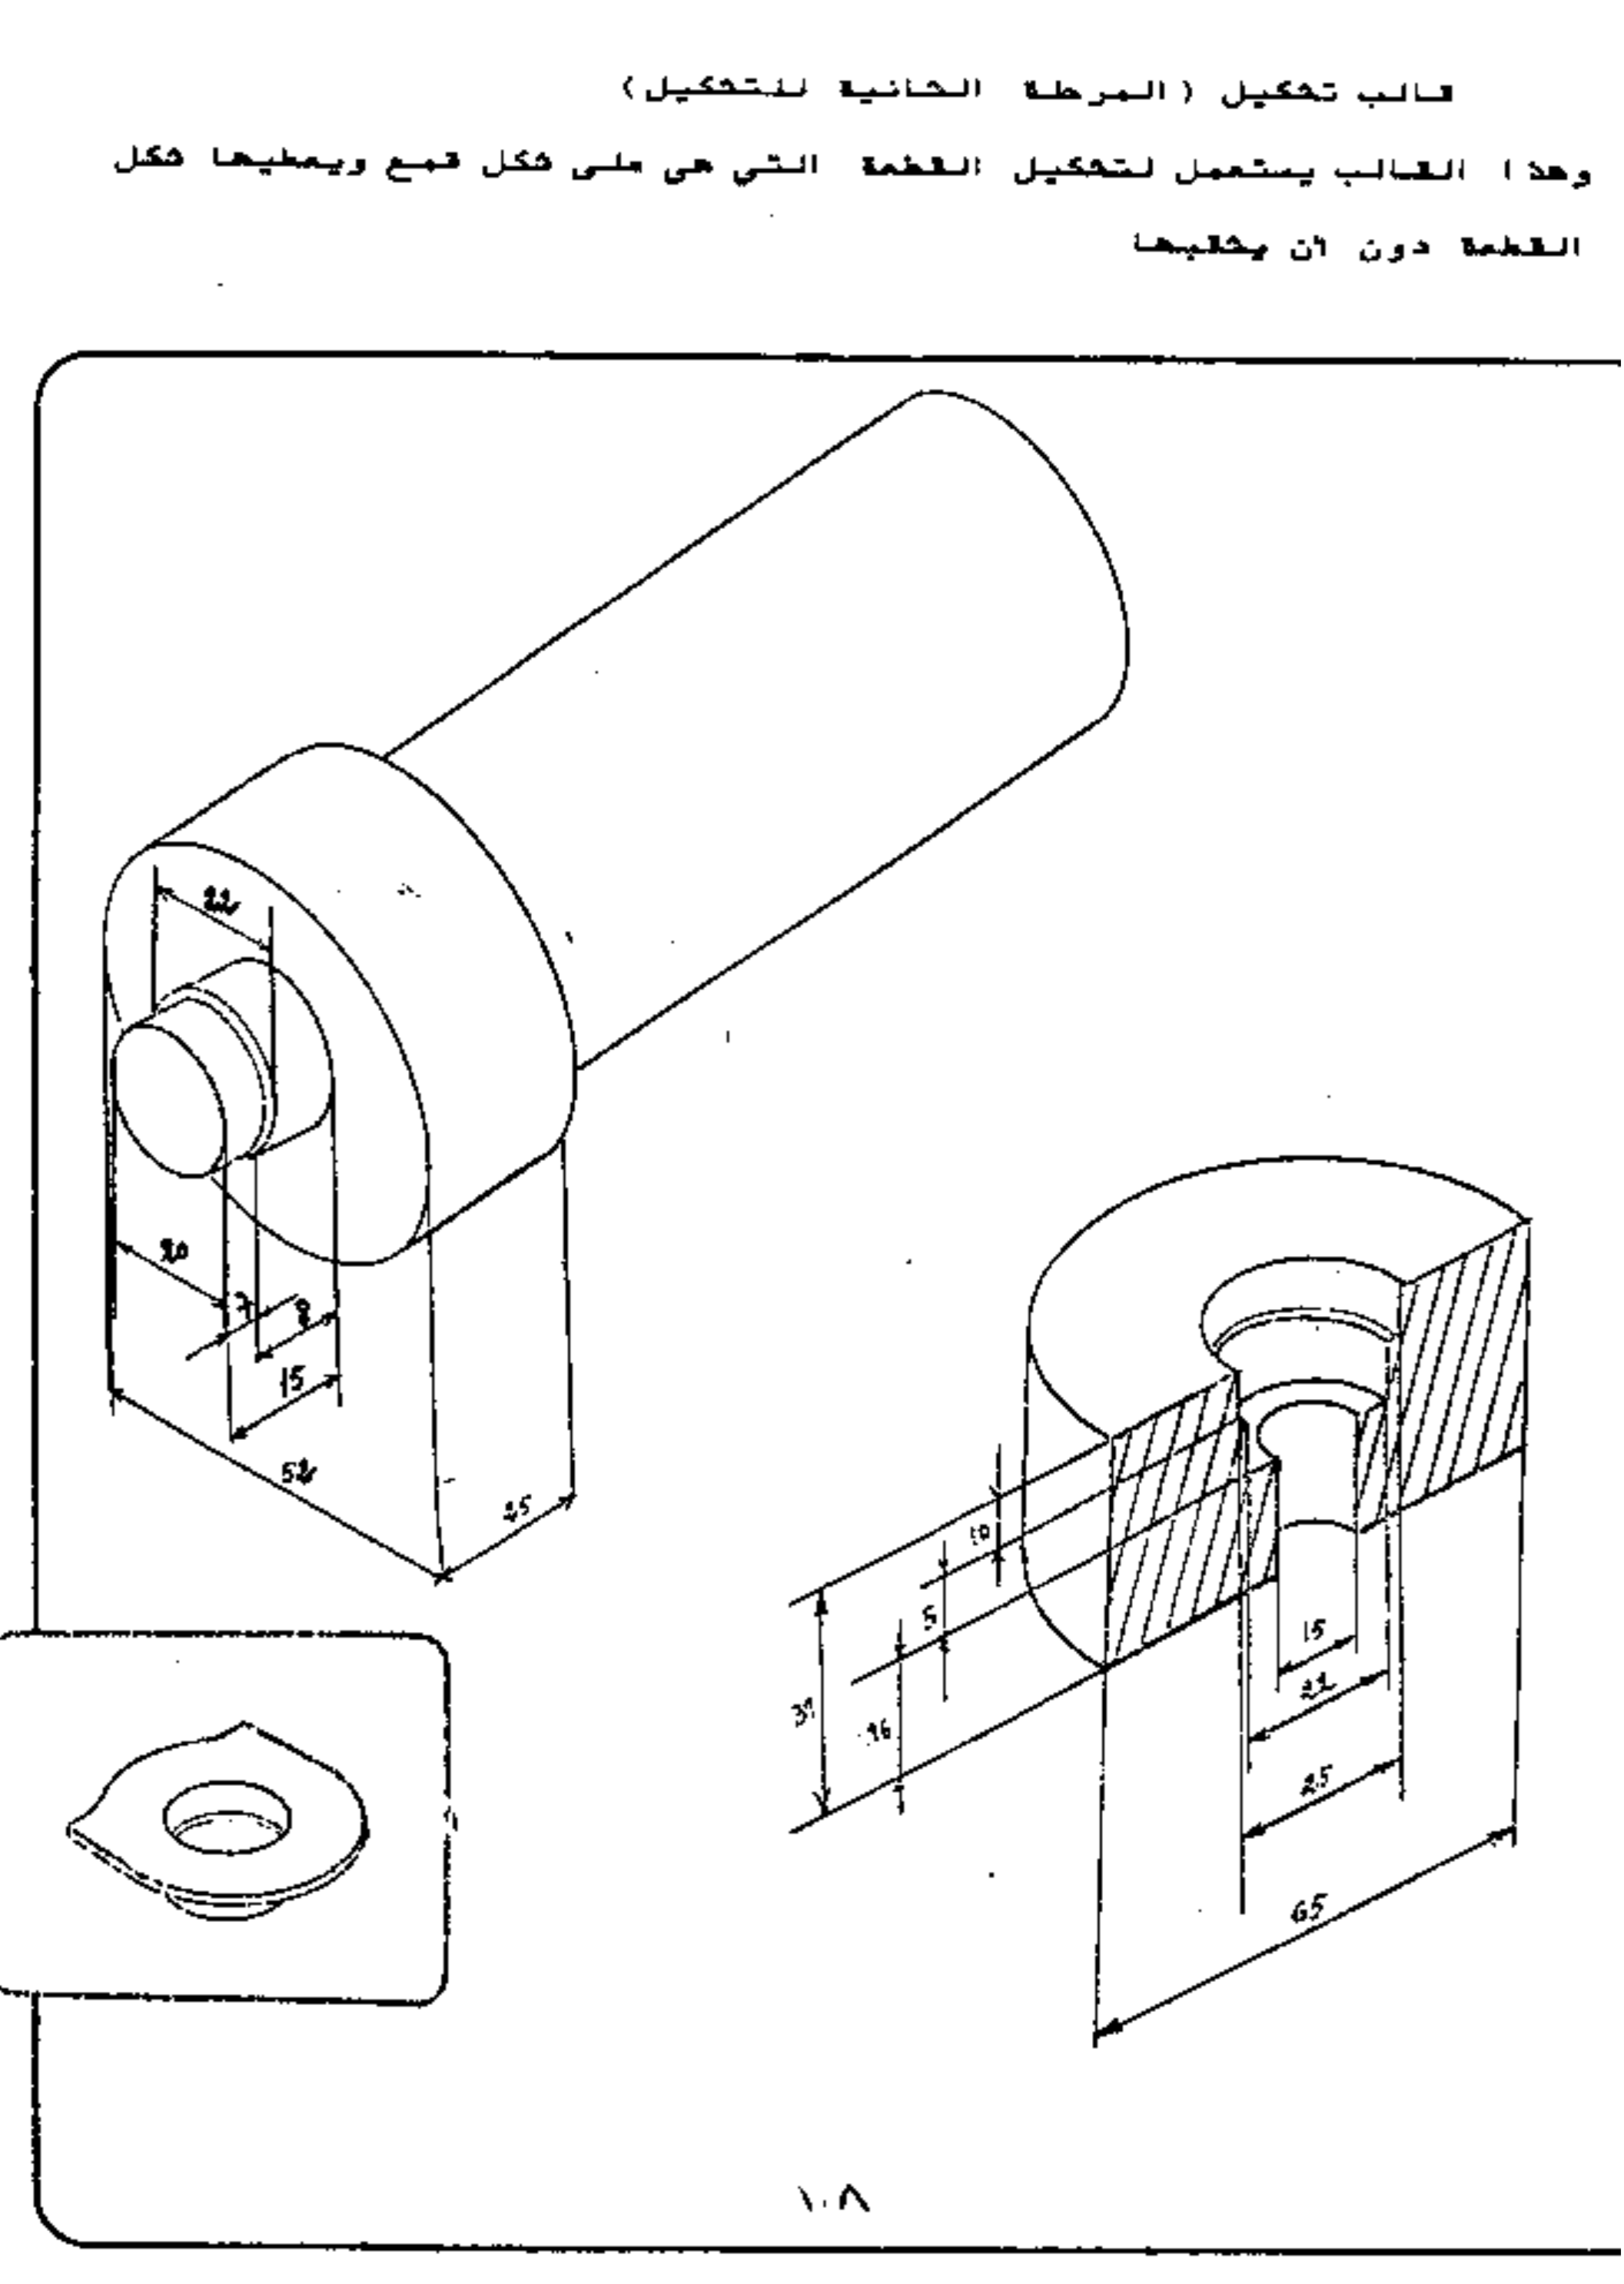 قالب تشكيل (المرحلة الثانية للتشكيل)
وهذا القالب يستعمل لتشكيل القطعة التي هي على شكل قمع ويعطيها شكل
القطعة دون أن يثقبها
22
20
7
8
15
52
10
5
15
22
25
65
١٠٨